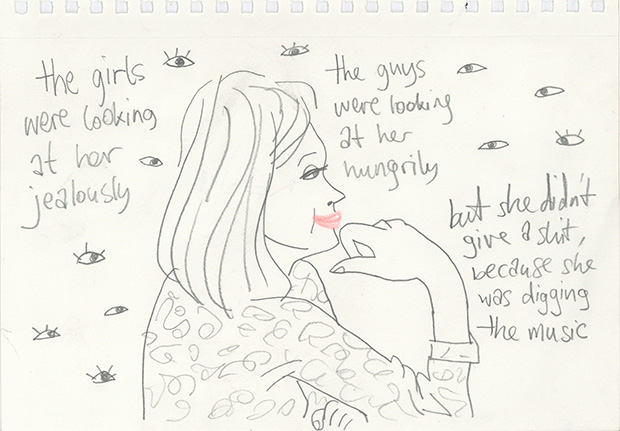 the girls
were looking
at her
jealously
the guys
were looking
at her
hungrily
but she didn't
give a shit,
because she
was digging
the music